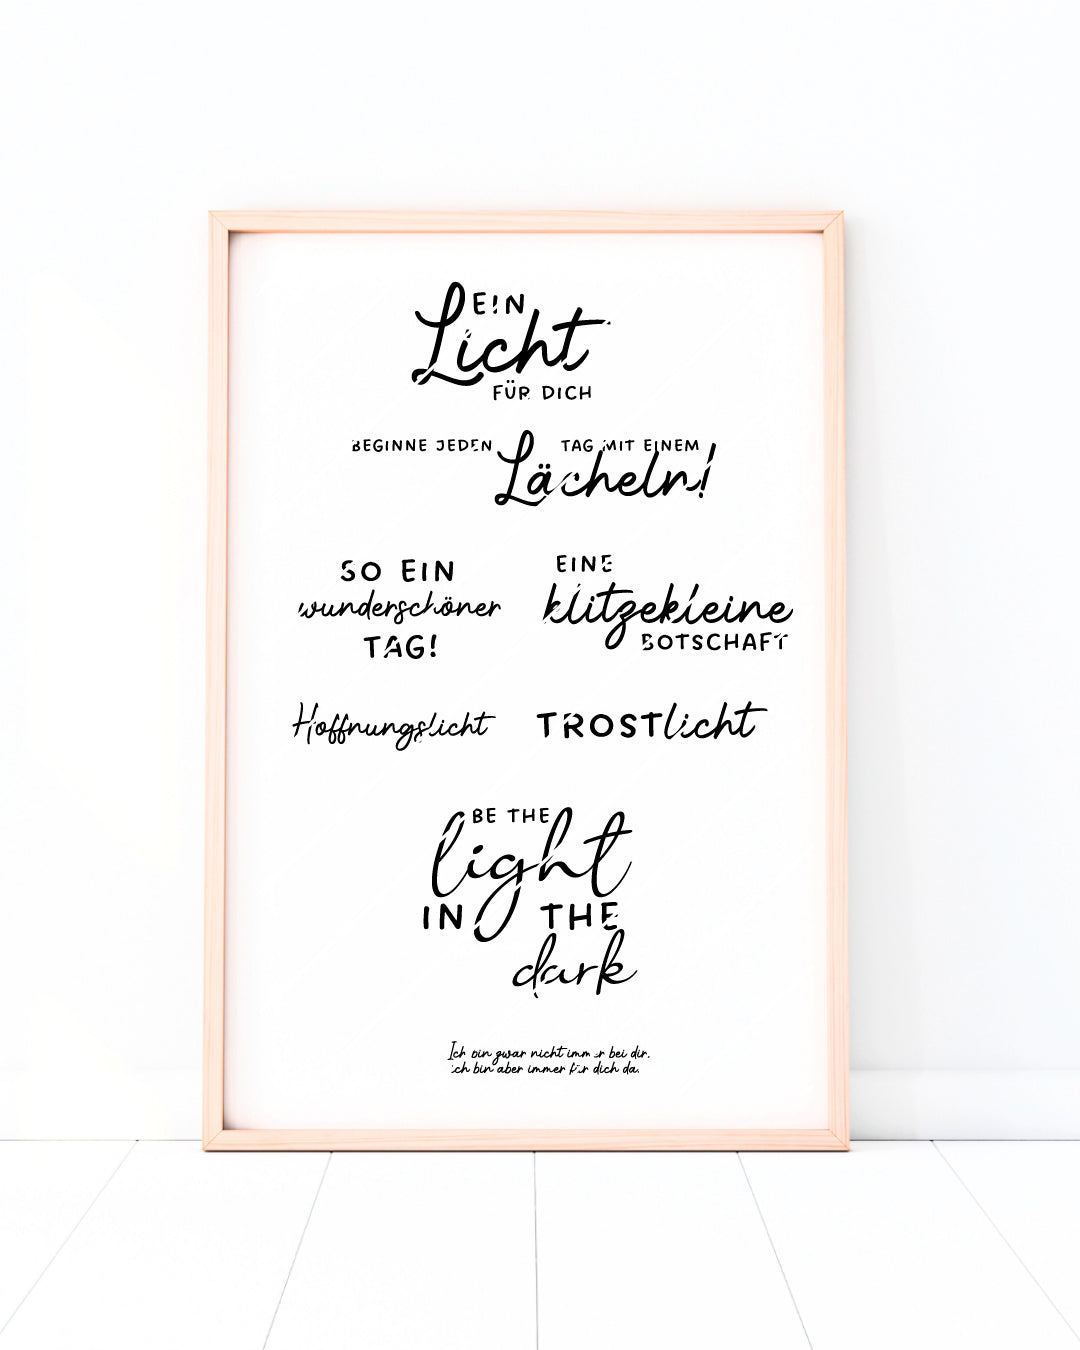 EIN
Licht
FÜR DICH
BEGINNE JEDEN TAG MIT EINEM
Lächeln!
SO EIN
wunderschöner
TAG!
EINE
klitzekleine
BOTSCHAFT
Hoffnungslicht
TROSTlicht
BE THE
light
IN THE
dark
Ich bin zwar nicht immer bei dir.
ich bin aber immer für dich da.